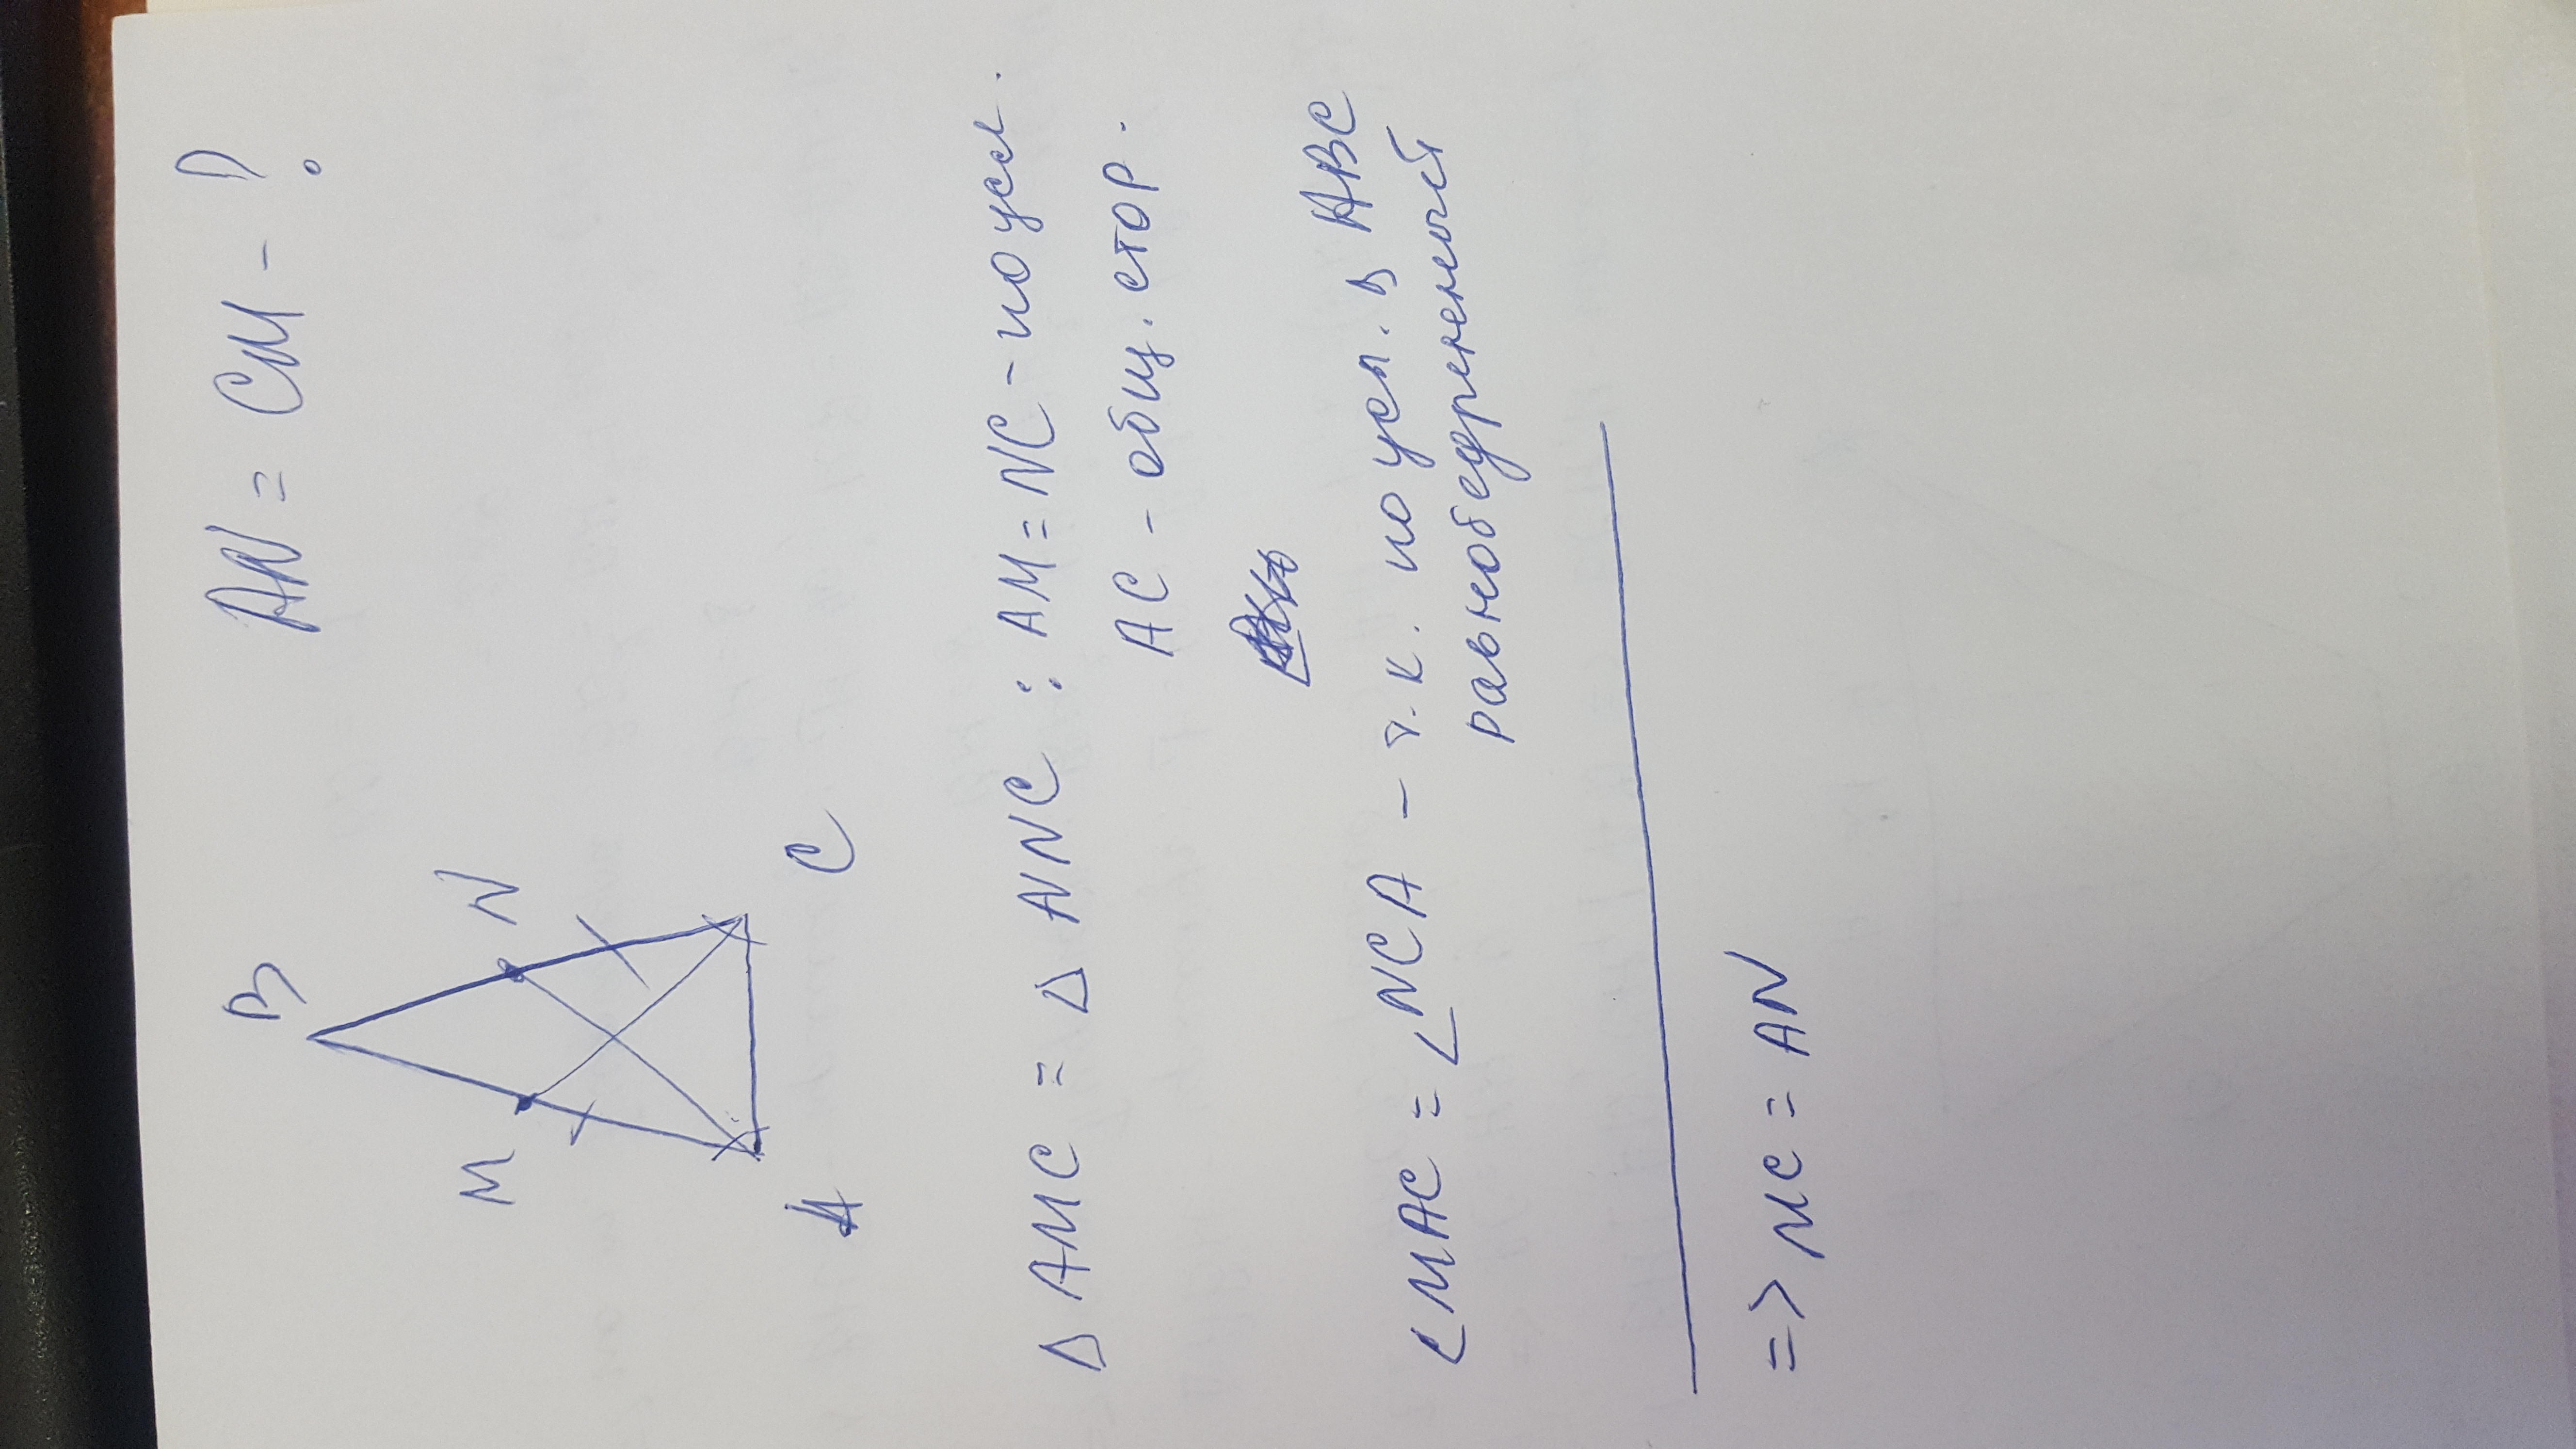 AN = CM - ?
B
M N
A C
Δ AMC = Δ ANC : AM = NC - по усл.
AC - общ. стор.
∠MAC = ∠NCA - т.к. по усл. Δ ABC
равнобедренный
=> MC = AN